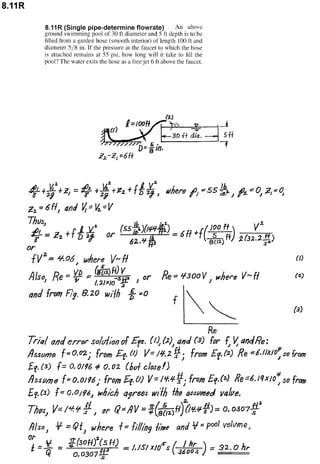 8.11R
8.11R (Single pipe-determine flowrate) An above
ground swimming pool of 30 ft diameter and 5 ft depth is to be
filled from a garden hose (smooth interior) of length 100 ft and
diameter 5/8 in. If the pressure at the faucet to which the hose
is attached remains at 55 psi, how long will it take to fill the
pool? The water exits the hose as a free jet 6 ft above the faucet.
(2)
ℓ=100ft
(1)
30 ft dia.
5ft
D=5/8 in.
Z₂-Z₁=6ft
p₁/γ + V₁²/2g + Z₁ = p₂/γ + V₂²/2g + Z₂ + f ℓ/D V²/2g , where p₁=55 lb/in.², p₂=0, Z₁=0,
Z₂=6ft, and V₁=V₂=V
Thus,
p₁/γ = Z₂ + f ℓ/D V²/2g or (55 lb/in.²)(144 in.²/ft²)/62.4 lb/ft³ = 6ft + f (100 ft/(5/8(12) ft)) V²/2(32.2 ft/s²)
or
fV² = 4.05, where V~ft/s (1)
Also, Re = VD/ν = (5/8(12) ft)V/1.21×10⁻⁵ ft²/s , or Re = 4300V, where V~ft/s (2)
and from Fig. 8.20 with ε/D = 0
f
(3)
Re
Trial and error solution of Eqs. (1), (2), and (3) for f, V, and Re:
Assume f=0.02; from Eq. (1) V=14.2 ft/s; from Eq. (2) Re=6.11×10⁴, so from
Eq. (3) f=0.0196 ≠ 0.02 (but close!)
Assume f=0.0196; from Eq. (1) V=14.4 ft/s; from Eq. (2) Re=6.19×10⁴, so from
Eq. (3) f=0.0196, which agrees with the assumed value.
Thus, V=14.4 ft/s, or Q=AV = π/4 (5/8(12) ft)² (14.4 ft/s) = 0.0307 ft³/s
Also, V̶ = Qt, where t = filling time and V̶ = pool volume,
or
t = V̶/Q = π/4 (30ft)² (5ft)/0.0307 ft³/s = 1.151×10⁵ s (1 hr/3600 s) = 32.0 hr